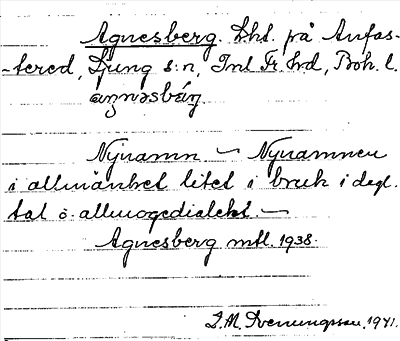 Agnesberg. Lht. på Anfas-
-tered, Ljung s:n, Inl Fr. hd, Boh. l.
aŋnəsbærj.
Nynamn — Nynamnen
i allmänhet litet i bruk i dagl.
tal o. allmogedialekt. —
Agnesberg mtl. 1938.
J. M. Svenungsson. 1941.